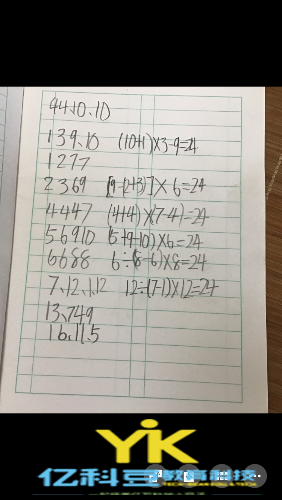 44.10.10
139.10 (10+1)×3-9=24
1277
2369 [9-(2+3)]×6=24
4447 (4+4)×(7-4)=24
56910 (5+9-10)×6=24
6688 6÷(8-6)×8=24
7.12.1.12 12÷(7-1)×12=24
13.749
16.11.5
YiK
亿科豆教育科技